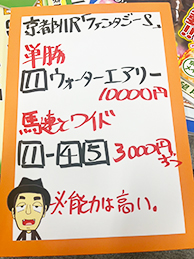 京都11RファンタジーS.
単勝
11 ウォーターエアリー
10000円
馬連とワイド
11-4 5 3000円ずつ
必ず能力は高い。